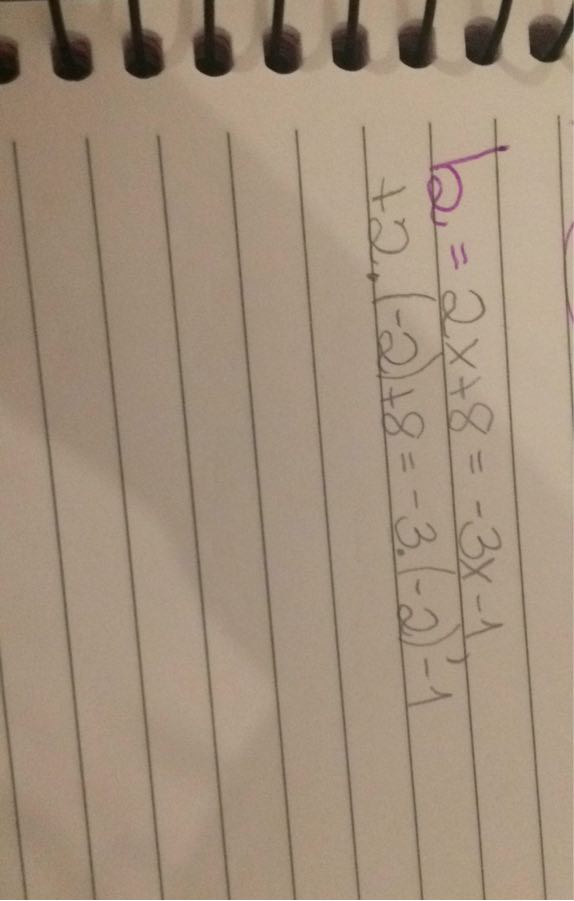 b = 2x+8 = -3x-1
+2.(-2)+8 = -3.(-2)-1